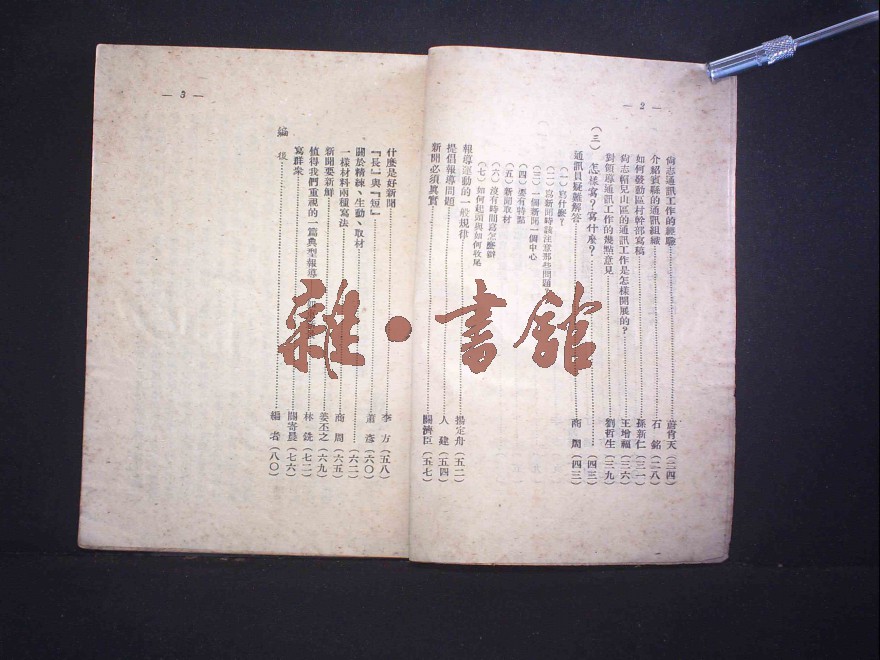 — 2 —
尙志通訊工作的經驗……蔚肯天(二四)
介紹賓縣的通訊組織……石 銘(二八)
如何發動區村幹部寫稿……孫新仁(三一)
尙志帽兒山區的通訊工作是怎樣開展的?……王增福(三六)
對領導通訊工作的幾點意見……劉哲生(三九)
(三) 怎樣寫?寫什麼?……(四三)
通訊員疑難解答……商 周(四三)
(一)寫什麼?
(二)寫新聞時該注意那些問題
(三)一個新聞一個中心
(四)要有特點
(五)新聞取材
(六)沒有時間寫怎麽辦
(七)如何起頭與如何收尾
報導運動的一般規律……楊定舟(五二)
提倡報導問題……人 建(五四)
新聞必須真實……關濟臣(五七)
— 3 —
什麼是好新聞……李 方(五八)
『長』與『短』……蕭 彥(六〇)
關於精練、生動、取材……(六二)
一樣材料兩種寫法……商 周(六五)
新聞要新鮮……姜丕之(六九)
值得我們重視的一篇典型報導……林 銑(七二)
寫群衆……關寄晨(七六)
編 後……編 者(八〇)
雜·書館